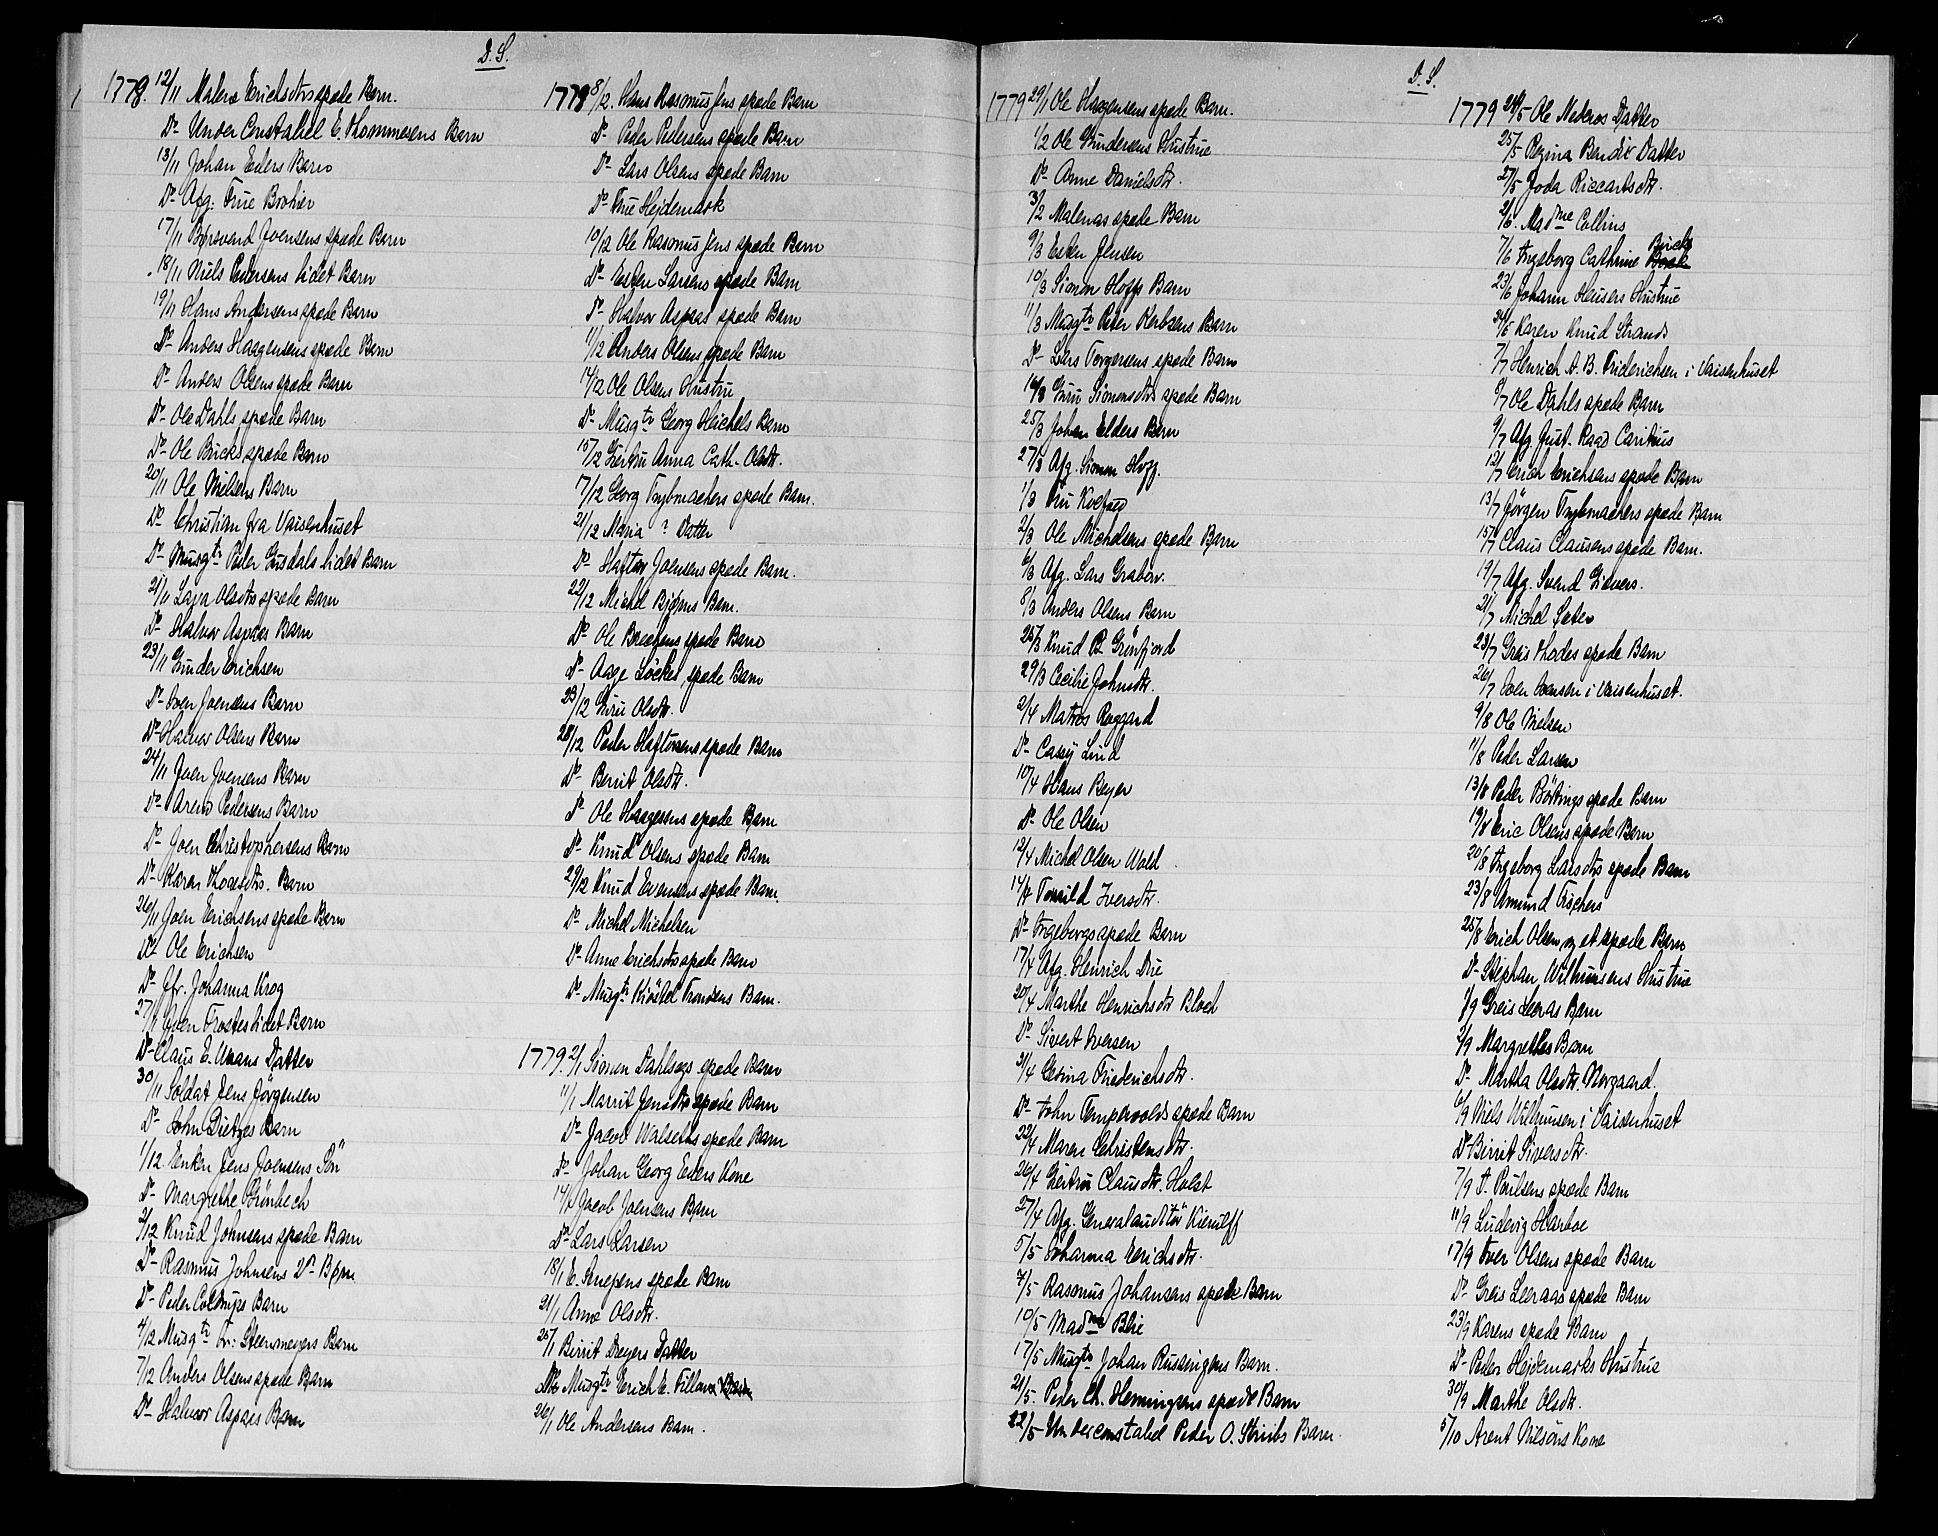 D. S.
1778. 12/11 Malene Erichsdtrs spæde Barn.
Do Under Constabel E. Thommesens Barn
13/11 Johan Eders Barn
Do Afg. Frue Brohier
17/11 Joensens spæde Barn
18/11 Niels Pedersens lidet Barn
19/11 Hans Andersens spæde Barn
Do Anders Haagensens spæde Barn
Do Anders Olsens spæde Barn
Do Ole Dahls spæde Barn
Do Ole Bucks spæde Barn
20/11 Ole Nielsens Barn
Do Christian fra Vaisenhuset
Do Musqtr Peder Gusdals lidet Barn
21/11 Olsdtrs spæde Barn
Do Halvor Aspaas Barn
23/11 Gunder Erichsen
Do Iver Joensens Barn
Do Halvor Olsens Barn
24/11 Joen Joensens Barn
Do Arent Pedersens Barn
Do Joen Christophersens Barn
Do Karen Thoresdtrs. Barn
26/11 Joen Erichsens spæde Barn
Do Ole Erichsen
Do Jfr. Johanna Krog
27/11 Joen Frostes lidet Barn
Do Claus E. Datter
30/11 Soldat Jens Jörgensen
Do John Dietzes Barn
1/12. Enken Jens Joensens Sön
Do Margrethe Grönbech
2/12 Knud Johnsens spæde Barn
Do Rasmus Johnsens Do Barn
Do Peder Barn
4/12 Musqtr Fr: Steenmeyers Barn
7/12 Anders Olsens spæde Barn
Do Halvor Aspaas Barn
1778 8/12. Hans Rasmus Jens spæde Barn
Do Peder Pedersens spæde Barn
Do Lars Olsens spæde Barn
Do Frue Hejdemark
10/12 Ole Rasmus Jens spæde Barn
Do Esten Larsens spæde Barn
Do Halvor Aspaas spæde Barn
11/12 Anders Olsens spæde Barn
14/12 Ole Olsens Hustru
Do Musqtr Georg Heichels Barn
15/12 Giertru Anna Cath. Olsdtr.
17/12 Georg Trybmachers spæde Barn.
21/12 Maria ? Datter
Do Haftor Joensens spæde Barn.
22/12 Michel Bjørns Barn.
Do Ole spæde Barn
Do Aage Löckes spæde Barn
23/12 Guru Olsdtr.
28/12 Peder Haftorsens spæde Barn
Do Berrit Olsdtr.
Do Ole Haagensens spæde Barn
Do Knud Olsens spæde Barn
29/12 Knud Evensens spæde Barn.
Do Michel Michelsen
Do Anne Erichsdtrs spæde Barn
Do Musqtr Kiöstel Tronsens Barn.
1779. 2/1 Simon Dahlsegs spæde Barn
11/1 Marrit Jensdtrs spæde Barn
Do Jacob Walseths spæde Barn
Do Johan Georg Eders Kone
14/1 Jacob Joensens Barn
Do Lars Larsen
18/1 E. spæde Barn
21/1 Anne Olsdtr.
25/1 Birrit Dreyers Datter
Do Musqtr Erich E. Fillan
26/1 Ole Andersens Barn.
D. S.
1779 29/1 Ole Haagensens spæde Barn.
1/2 Ole Gundersens Hustrue
Do Anne Danielsdtr.
3/2 Malenas spæde Barn
9/3 Esten Jensen
10/3 Simon Hoffs Barn
11/3 Musqtr Peter Barn
Do Lars Torgersens spæde Barn
14/3 Guru Simonsdtrs spæde Barn
25/3 Johan Elders Barn
27/3 Afg. Simon Hoff.
1/3
2/3 Ole Michelsens spæde Barn
6/3 Afg. Lars Grabow.
8/3 Anders Olsens Barn
25/3 Knud P. Grönfjord
29/3 Cecilie Johnsdtr.
2/4 Matros Roggard
Do Lind
10/4 Hans Beyer
Do Ole Olsen
12/4 Michel Olsen Wold
14/4 Torrild Iversdtr.
Do Ingeborgs spæde Barn
17/4 Afg. Henrich Due
20/4 Marthe Henrichsdtr Bloch
Do Sivert Iversen
21/4 Gesina Friederichsdtr.
Do John Tempervolds spæde Barn
22/4 Maren Christensdtr.
26/4 Giertru Clausdtr. Holst
27/4 Afg. Generalauditör Kierulff
5/5 Johanna Erichsdtr.
7/5 Rasmus Johansens spæde Barn
10/5 Madme Blie
17/5 Musqtr Johan Barn.
21/5. Peder Ch. Hemmingsens spæde Barn
22/5 Underconstabel Peder O. Barn
1779 24/5 Ole Mederos Datter
25/5 Regina Bendix Datter
27/5 Joda Riccartsdtr.
2/6. Madme Collins
7/6 Ingeborg Cathrine Buck
23/6 Johann Heusers Hustrue
24/6 Karen Knud Strands
7/7 Henrich A. B. Friderichsen i Vaisenhuset
8/7 Ole Dahls spæde Barn
9/7 Afg Just. Raad Caritius
12/7 Erich Erichsens spæde Barn
13/7 Jörgen Trybmachers spæde Barn
15/7 Claus Clausens spæde Barn.
19/7 Afg. Svend Grevers.
21/7 Michel Sæter
23/7 Greis Thodes spæde Barn
26/7 Iver Iversen i Vaisenhuset.
9/8 Ole Nielsen
11/8 Peder Larsen
13/8 Peder Börtings spæde Barn
19/8 Eric Olsens spæde Barn
20/8 Ingeborg Larsdtrs spæde Barn
23/8 Amund Fischers
25/8 Erich Olsen og et spæde Barn
Do Stephan Wilhumsens Hustrue
1/9 Greis Leeras Barn
2/9 Margrethes Barn
Do Martha Olsdtr. Norgaard.
6/9 Niels Wilhumsen i Vaisenhuset
Do Birrit Siversdtr.
7/9 T. Poulsens spæde Barn
11/9 Ludevig Harboe
17/9 Iver Olsens spæde Barn
Do Greis Leeraas spæde Barn
23/9 Karens spæde Barn
Do Peder Hejdemarks Hustrue
30/9 Marthe Olsdtr.
5/10 Arent Nilsöns Kone